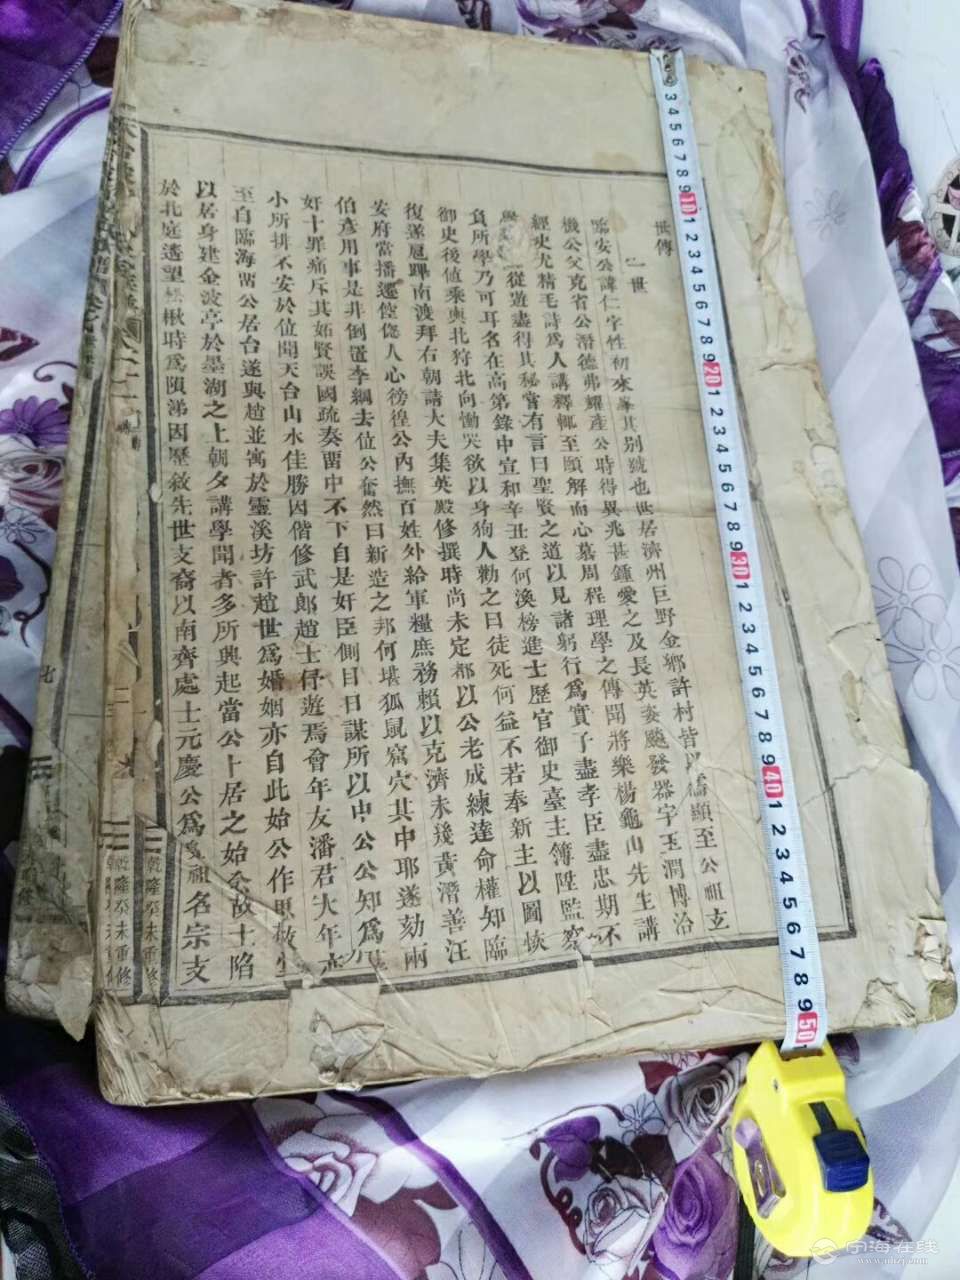 世傳
一世
臨安公諱仁字性初來峯其別號也世居濟州巨野金鄉許村皆以儒顯至公祖玄
機公父克省公潛德弗耀產公時得異兆甚鍾愛之及長英姿颷發器宇玉潤博洽
經史尤精毛詩爲人講釋輒至頤解而心慕周程理學之傳聞將樂楊龜山先生講
從遊盡得其秘嘗有言曰聖賢之道以見諸躬行爲實子盡孝臣盡忠期不
負所學乃可耳名在高第錄中宣和辛丑登何渙榜進士歷官御史臺主簿陞監察
御史後值乘輿北狩北向慟哭欲以身狥人勸之曰徒死何益不若奉新主以圖恢
復遂扈蹕南渡拜右朝請大夫集英殿修撰時尚未定都以公老成練達命權知臨
安府當播遷倥偬人心徬徨公內撫百姓外給軍糧庶務賴以克濟未幾黃潛善汪
伯彥用事是非倒置李綱去位公奮然曰新造之邦何堪狐鼠窟穴其中耶遂劾兩
奸十罪痛斥其妬賢誤國疏奏畱中不下自是奸臣側目日謀所以中公公知爲
小所排不安於位聞天台山水佳勝因偕修武郎趙士伃遊焉會年友潘君大年亦
至自臨海畱公居台遂與趙並寓於靈溪坊許趙世爲婚姻亦自此始公作思敬
以居身建金波亭於墨湖之上朝夕講學聞者多所興起當公卜居之始念故土陷
於北庭遙望松楸時爲隕涕因歷敘先世支裔以南齊處士元慶公爲鼻祖名宗支
乾隆癸未重修
乾隆癸未重修
七
1 2 3 4 5 6 7 8 9 10 1 2 3 4 5 6 7 8 9 20 1 2 3 4 5 6 7 8 9 30 1 2 3 4 5 6 7 8 9 40 1 2 3 4 5 6 7 8 9 50
宁海在线